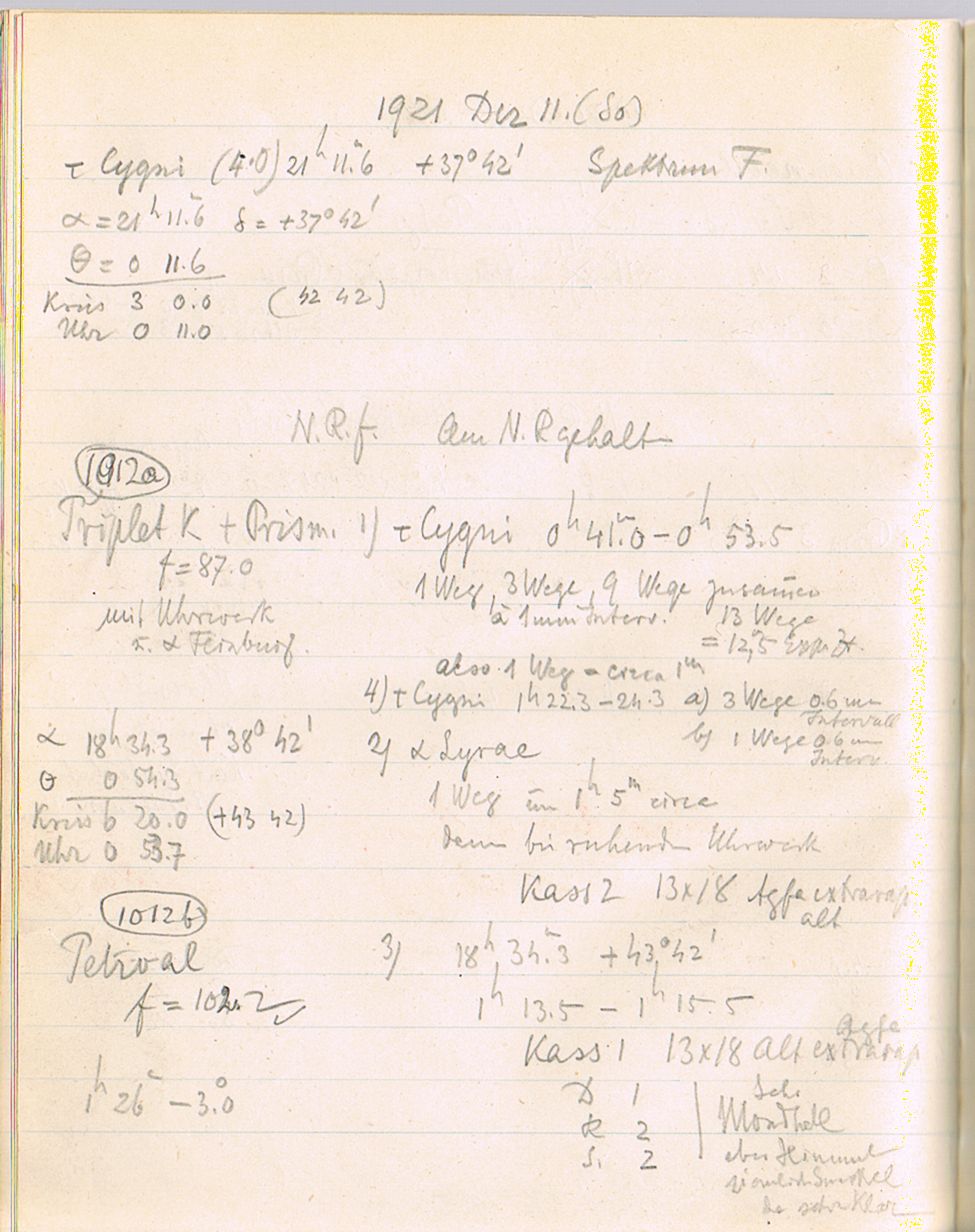 1921 Dez 11. (So)
τ Cygni (4.0) 21ʰ 11ᵐ.6 +37° 42' Spektrum F.
α = 21ʰ 11ᵐ.6 δ = +37° 42'
θ = 0 11.6
Kreis 3 0.0 (42 42)
Uhr 0 11.0
N.R.f. Am N.R gehalt
1912a
Triplet K + Prism. 1) τ Cygni 0ʰ 41ᵐ.0 – 0ʰ 53.5
f = 87.0
1 Weg, 3 Wege, 9 Wege zusam̄en
mit Uhrwerk
à 1 mm Interv. 13 Wege
= 12ᵐ,5
also 1 Weg = circa 1ᵐ
4) τ Cygni 1ʰ 22.3 – 24.3 a) 3 Wege 0.6 mm
Intervall
b) 1 Wege 0.6 mm
Interv.
α 18ʰ 34.3 +38° 42' 2) α Lyrae
θ 0 54.3
1 Weg um 1ʰ 5ᵐ circa
Kreis 6 20.0 (+43 42)
dann bei ruhendem Uhrwerk
Uhr 0 53.7
Kass 2 13x18 Agfa extrarap
alt
1012b
Petzval 3) 18ʰ 34ᵐ.3 +43° 42'
f = 102.2
1ʰ 13.5 – 1ʰ 15.5
Kass 1 13x18 alt Agfa extrarap
1ʰ 26ᵐ – 3.°0
D 1 Sehr
R 2 Mondhell
S. 2 aber Himmel
ziemlich dunkel
da sehr klar